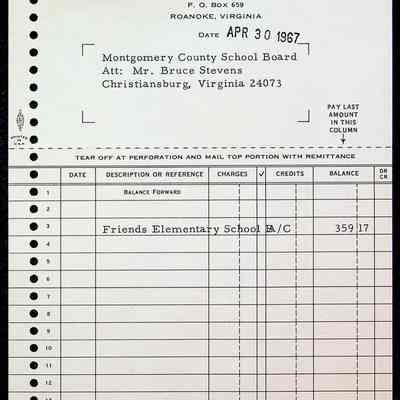 P. O. BOX 659
ROANOKE, VIRGINIA
DATE APR 30 1967
Montgomery County School Board
Att: Mr. Bruce Stevens
Christiansburg, Virginia 24073
PAY LAST
AMOUNT
IN THIS
COLUMN
PRINTED
IN
U.S.A.
TEAR OFF AT PERFORATION AND MAIL TOP PORTION WITH REMITTANCE
DATE DESCRIPTION OR REFERENCE CHARGES ✓ CREDITS BALANCE DR CR
1 BALANCE FORWARD
2
3 Friends Elementary School A/C 359 17
4
5
6
7
8
9
10
11
12